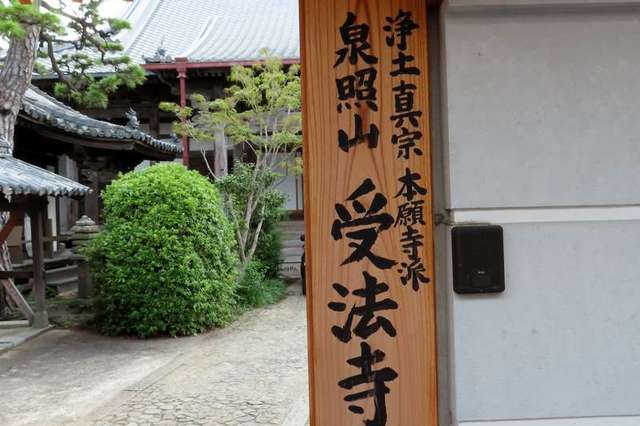 浄土真宗本願寺派
泉照山
受法寺